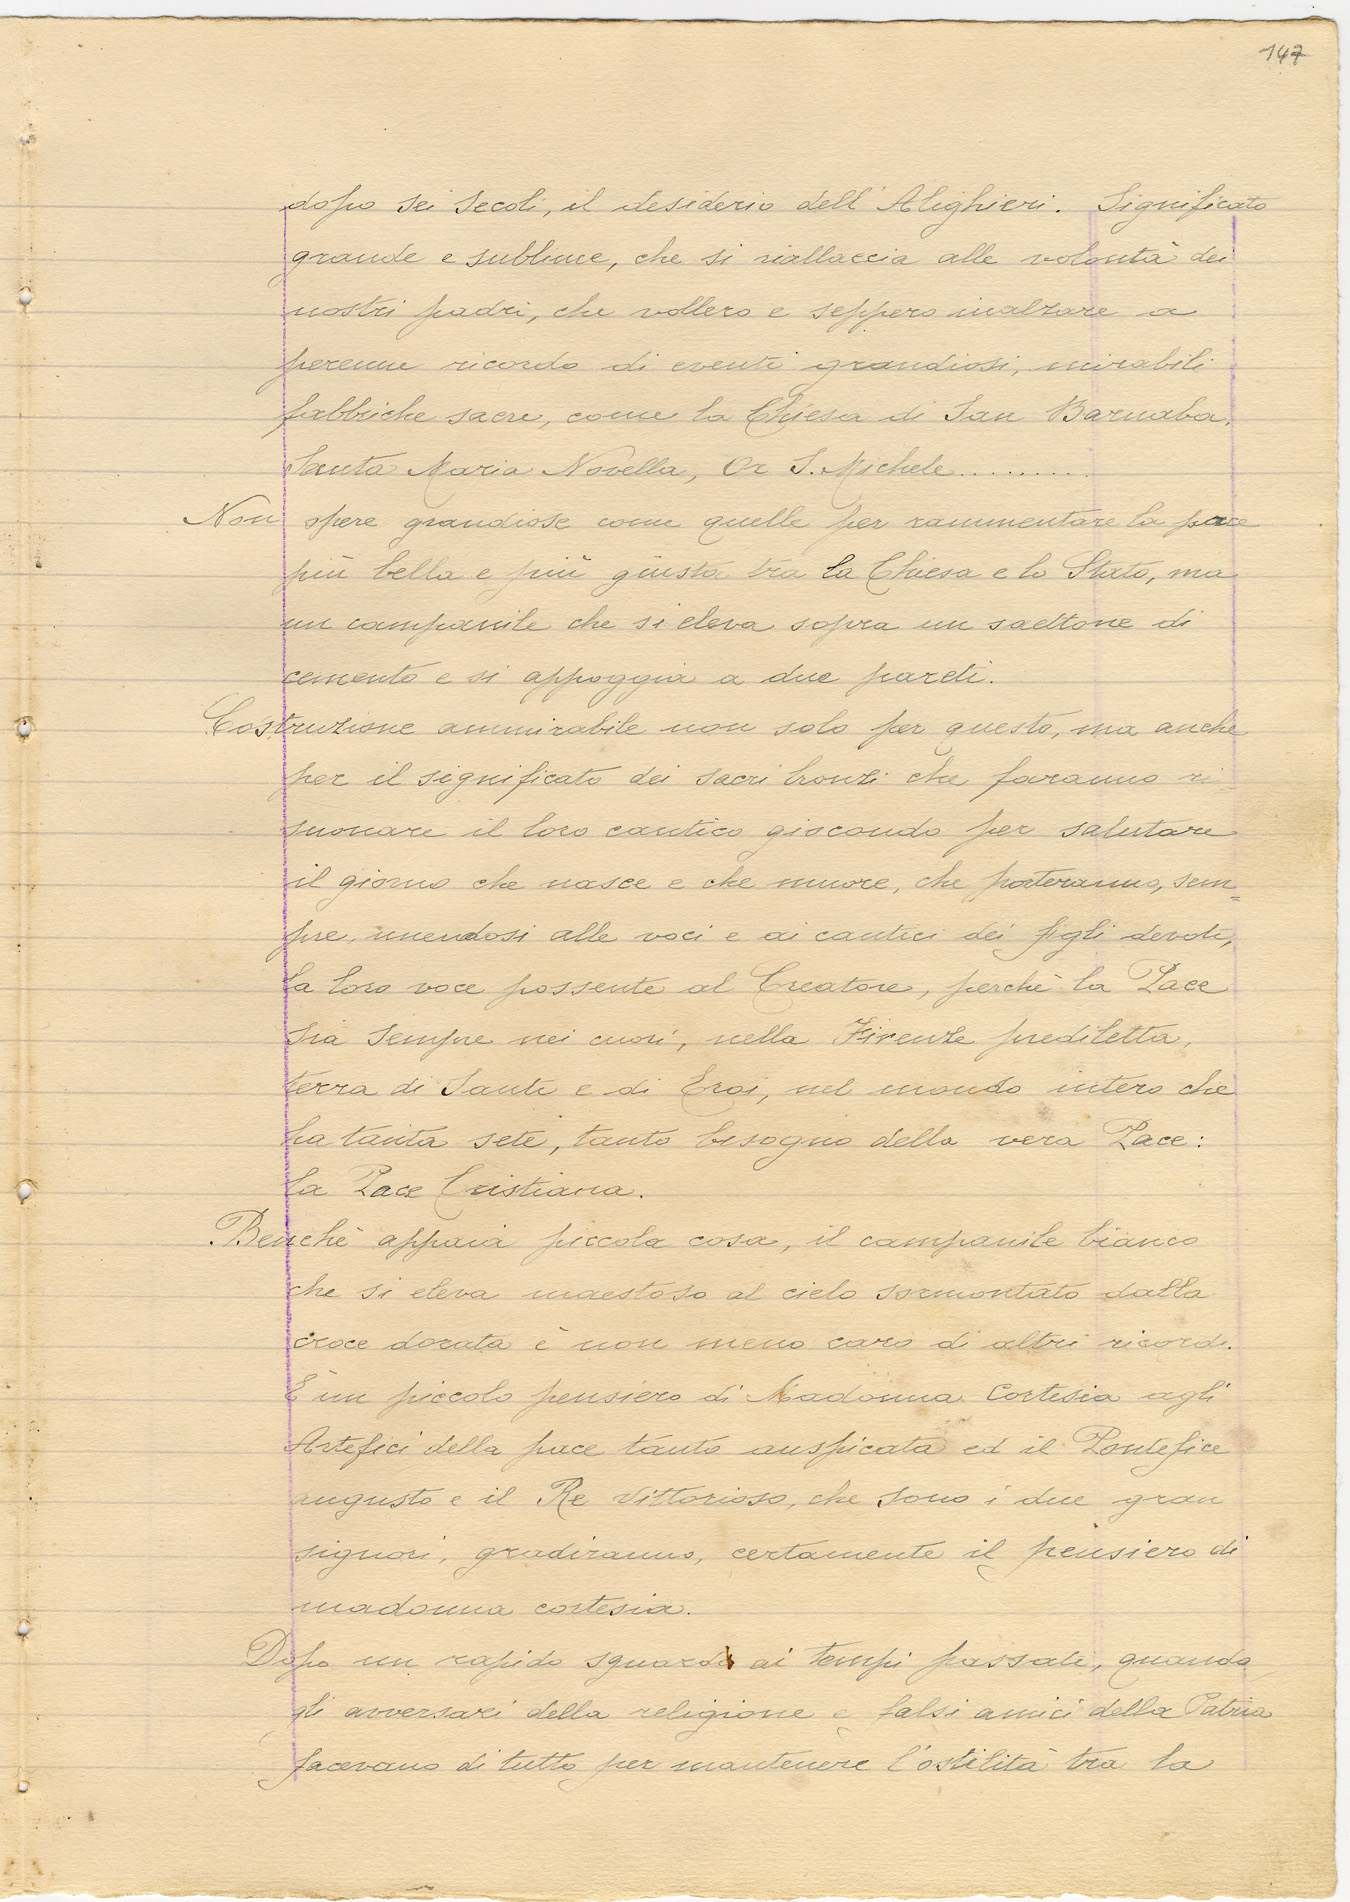 147
dopo sei secoli, il desiderio dell'Alighieri. Significato
grande e sublime, che si riallaccia alle volontà dei
nostri padri, che vollero e seppero inalzare a
perenne ricordo di eventi grandiosi, mirabili
fabbriche sacre, come la Chiesa di San Barnaba,
Santa Maria Novella, Or S. Michele..........
Non opere grandiose come quelle per rammentare la pace
più bella e più giusta tra la Chiesa e lo Stato, ma
un campanile che si eleva sopra un saettone di
cemento e si appoggia a due pareti.
Costruzione ammirabile non solo per questo, ma anche
per il significato dei sacri bronzi che faranno ri-
suonare il loro cantico giocondo per salutare
il giorno che nasce e che muore, che porteranno, sem=
pre, unendosi alle voci e ai cantici dei figli devoti,
la loro voce possente al Creatore, perchè la Pace
sia sempre nei cuori, nella Firenze prediletta,
terra di Santi e di Eroi, nel mondo intero che
ha tanta sete, tanto bisogno della vera Pace:
la Pace Cristiana.
Benchè appaia piccola cosa, il campanile bianco
che si eleva maestoso al cielo sormontato dalla
croce dorata è non meno caro di altri ricordi.
È un piccolo pensiero di Madonna Cortesia agli
Artefici della pace tanto auspicata ed il Pontefice
augusto e il Re Vittorioso, che sono i due gran
signori, gradiranno, certamente il pensiero di
madonna cortesia.
Dopo un rapido sguardo ai tempi passati, quando
gli avversari della religione e falsi amici della Patria
facevano di tutto per mantenere l'ostilità tra la